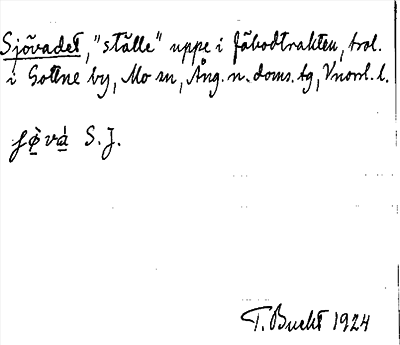 Sjövadet, "ställe" uppe i Fäbodtrakten, trol.
i Gottne by, Mo sn, Ång. n. doms. tg, Vnorrl. l.
S. J.
T. Bucht 1924